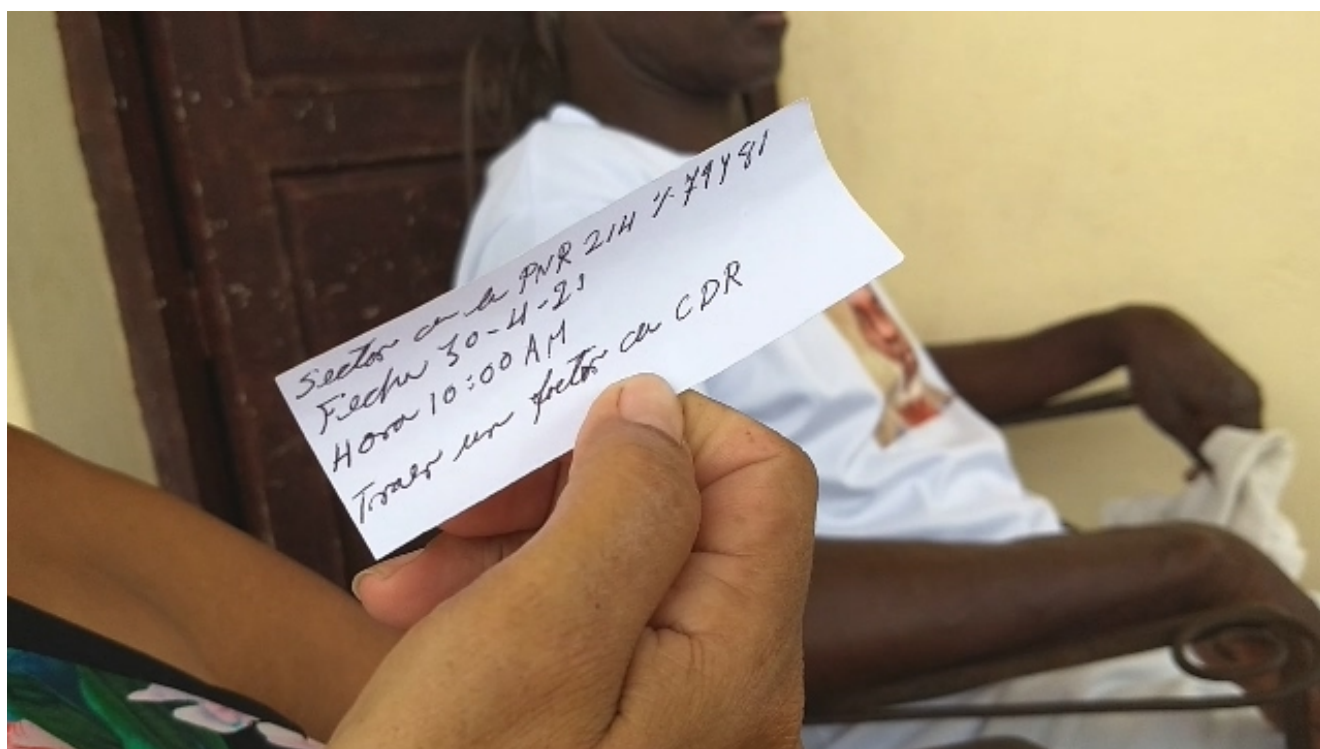 Sector de la PNR 214 % 79 y 81
Fecha 30-4-23
Hora 10:00 AM
Traer un factor de CDR